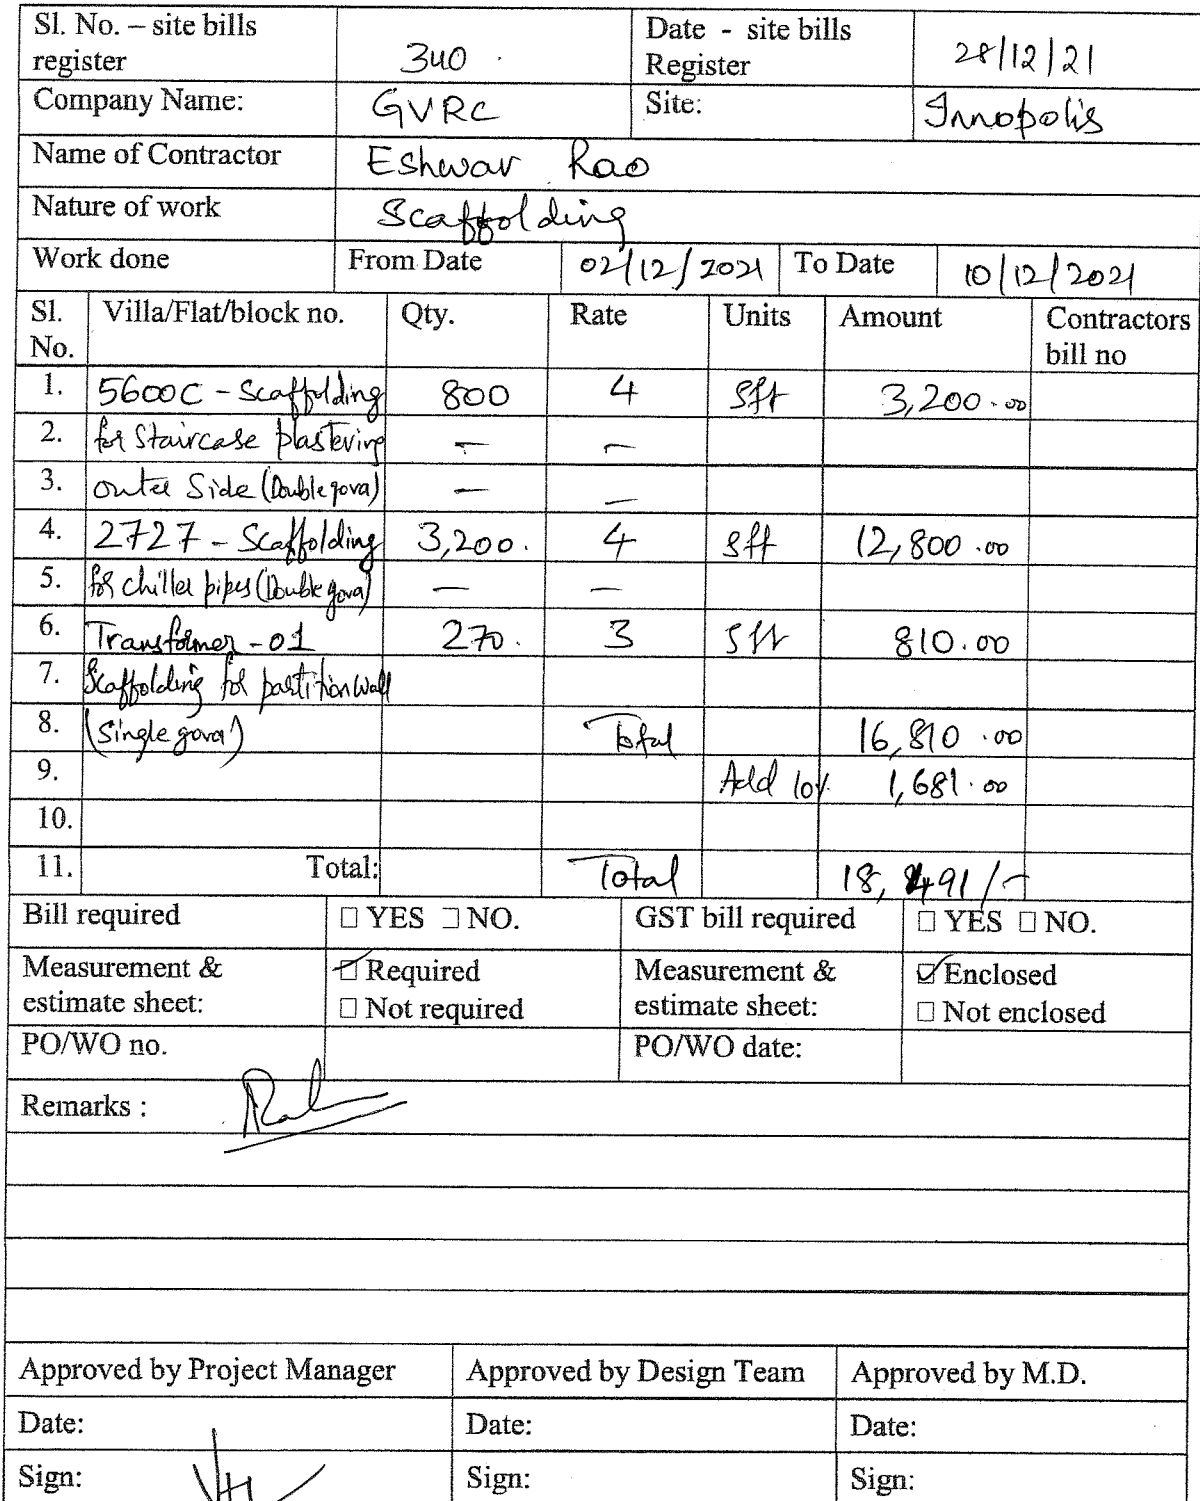 Sl. No. – site bills register 340 Date - site bills Register 28/12/21
Company Name: GVRC Site: Innopolis
Name of Contractor Eshwar Rao
Nature of work Scaffolding
Work done From Date 02/12/2021 To Date 10/12/2021
Sl. No. Villa/Flat/block no. Qty. Rate Units Amount Contractors bill no
1. 5600C - Scaffolding 800 4 Sft 3,200.00
2. for Staircase plastering — —
3. outer Side (Double gova) — —
4. 2727 - Scaffolding 3,200. 4 sft 12,800.00
5. for chiller pipes (Double gova) — —
6. Transformer - 01 270. 3 Sft 810.00
7. Scaffolding for partition wall
8. (Single gova) Total 16,810.00
9. Add 10% 1,681.00
10.
11. Total: Total 18,491/-
Bill required □ YES □ NO. GST bill required □ YES □ NO.
Measurement & estimate sheet: ☑ Required □ Not required Measurement & estimate sheet: ☑ Enclosed □ Not enclosed
PO/WO no. PO/WO date:
Remarks :
Approved by Project Manager Approved by Design Team Approved by M.D.
Date: Date: Date:
Sign: Sign: Sign: